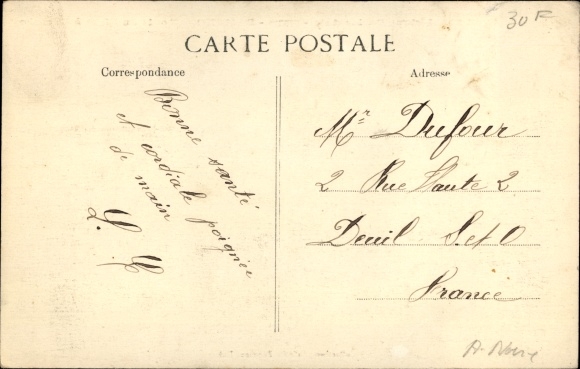 30 F
CARTE POSTALE
Correspondance
Bonne santé
et cordiale poignée
de main
L. L
Adresse
Mr Dufour
2 Rue Haute 2
Deuil S et O
France